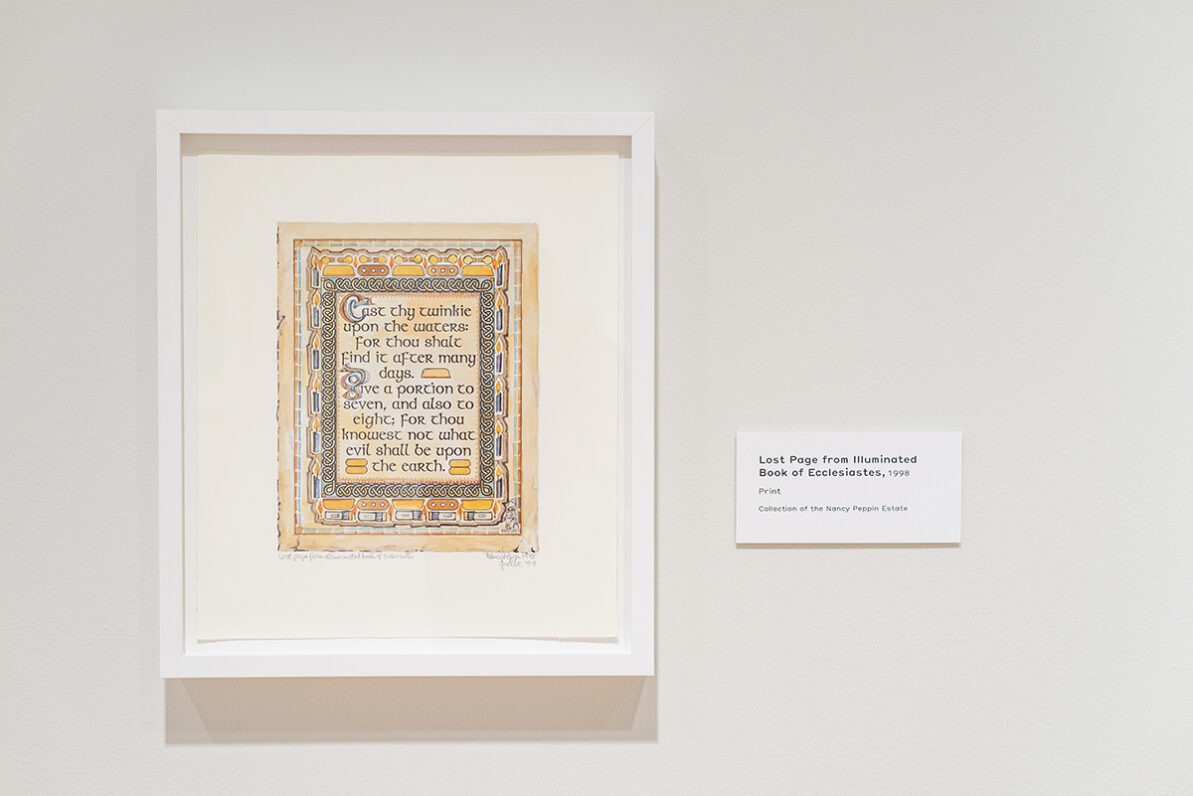 Cast thy twinkie
upon the waters:
For thou shalt
find it after many
days.
Give a portion to
seven, and also to
eight; for thou
knowest not what
evil shall be upon
the earth.
Lost Page from Illuminated Book of Ecclesiastes
Lost Page from Illuminated
Book of Ecclesiastes, 1998
Print
Collection of the Nancy Peppin Estate